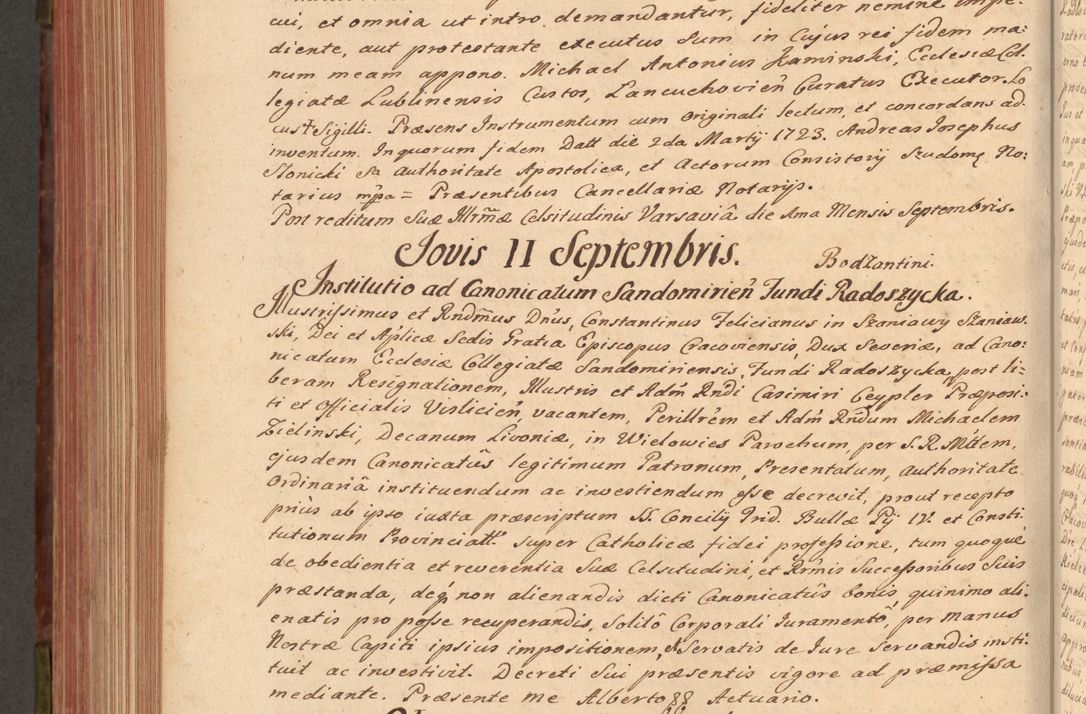 cui, et omnia ut intro, demandantur, fideliter nemine impe:
diente, aut protestante executus sum in Cujus rei fidem ma:
num meam appono. Michael Antonius Kaminski, Ecclesiæ Col:
legiatæ Lublinensis Custos, Lancuchovien̄ Curatus Executor. Lo
cus † Sigilli. Præsens Instrumentum cum originali lectum, et concordans ad
inventum. In quorum fidem Datt die 2da Martij 1723. Andreas Josephus
Słonicki Sa Authoritate Apostolica, et Actorum Consistorij No:
tarius mpa = Præsentibus Cancellariæ Notarijs.
Post reditum Suæ Illrm̄æ Celsitudinis Varsaviâ die Mensis Septembris.
Jovis 11 Septembris. Bodzantini.
Institutio ad Canonicatum Sandomirien̄ Fundi Radoszycka.
Illustrissimus et Rndm̄us Dn̄us, Constantinus Felicianus in Szaniawy Szaniaw:
ski, Dei et Aplicæ Sedis Gratia Episcopus Cracoviensis, Dux Severiæ, ad Cano:
nicatum Ecclesiæ Collegiatæ Sandomiriensis, Fundi Radoszycka, post li:
beram Resignationem, Illustris et Adm̄ Rndi Casimiri Ceypler Præposi:
ti et Officialis Vislicien̄, vacantem, Perillr̄em et Adm̄ Rndum Michaelem
Zielinski, Decanum Livoniæ, in Wielowies Parochum, per S. R. Mttem,
ejusdem Canonicatûs legitimum Patronum, Præsentatum, authoritate
Ordinariâ instituendum ac investiendum esse decrevit, prout recepto
priùs ab ipso iuxta præscriptum SS. Concilij Trid. Bullæ Pij IV. et Consti:
tutionum Provinciall. super Catholicæ fidei professione, tum quoque
de obedientia et reverentia Suæ Celsitudini, et Rr̄mis Successoribus Suis
præstanda, deq́ non alienandis dicti Canonicatûs bonis quinimo ali:
enatis pro posse recuperandis, solitô Corporali Juramentô, per manus
Nostræ Capiti ipsius impositionem, Servatis de Jure servandis insti:
tuit ac investivit. Decreti sui præsentis vigore ad præmissa
mediante. Præsente me Alberto Actuario.